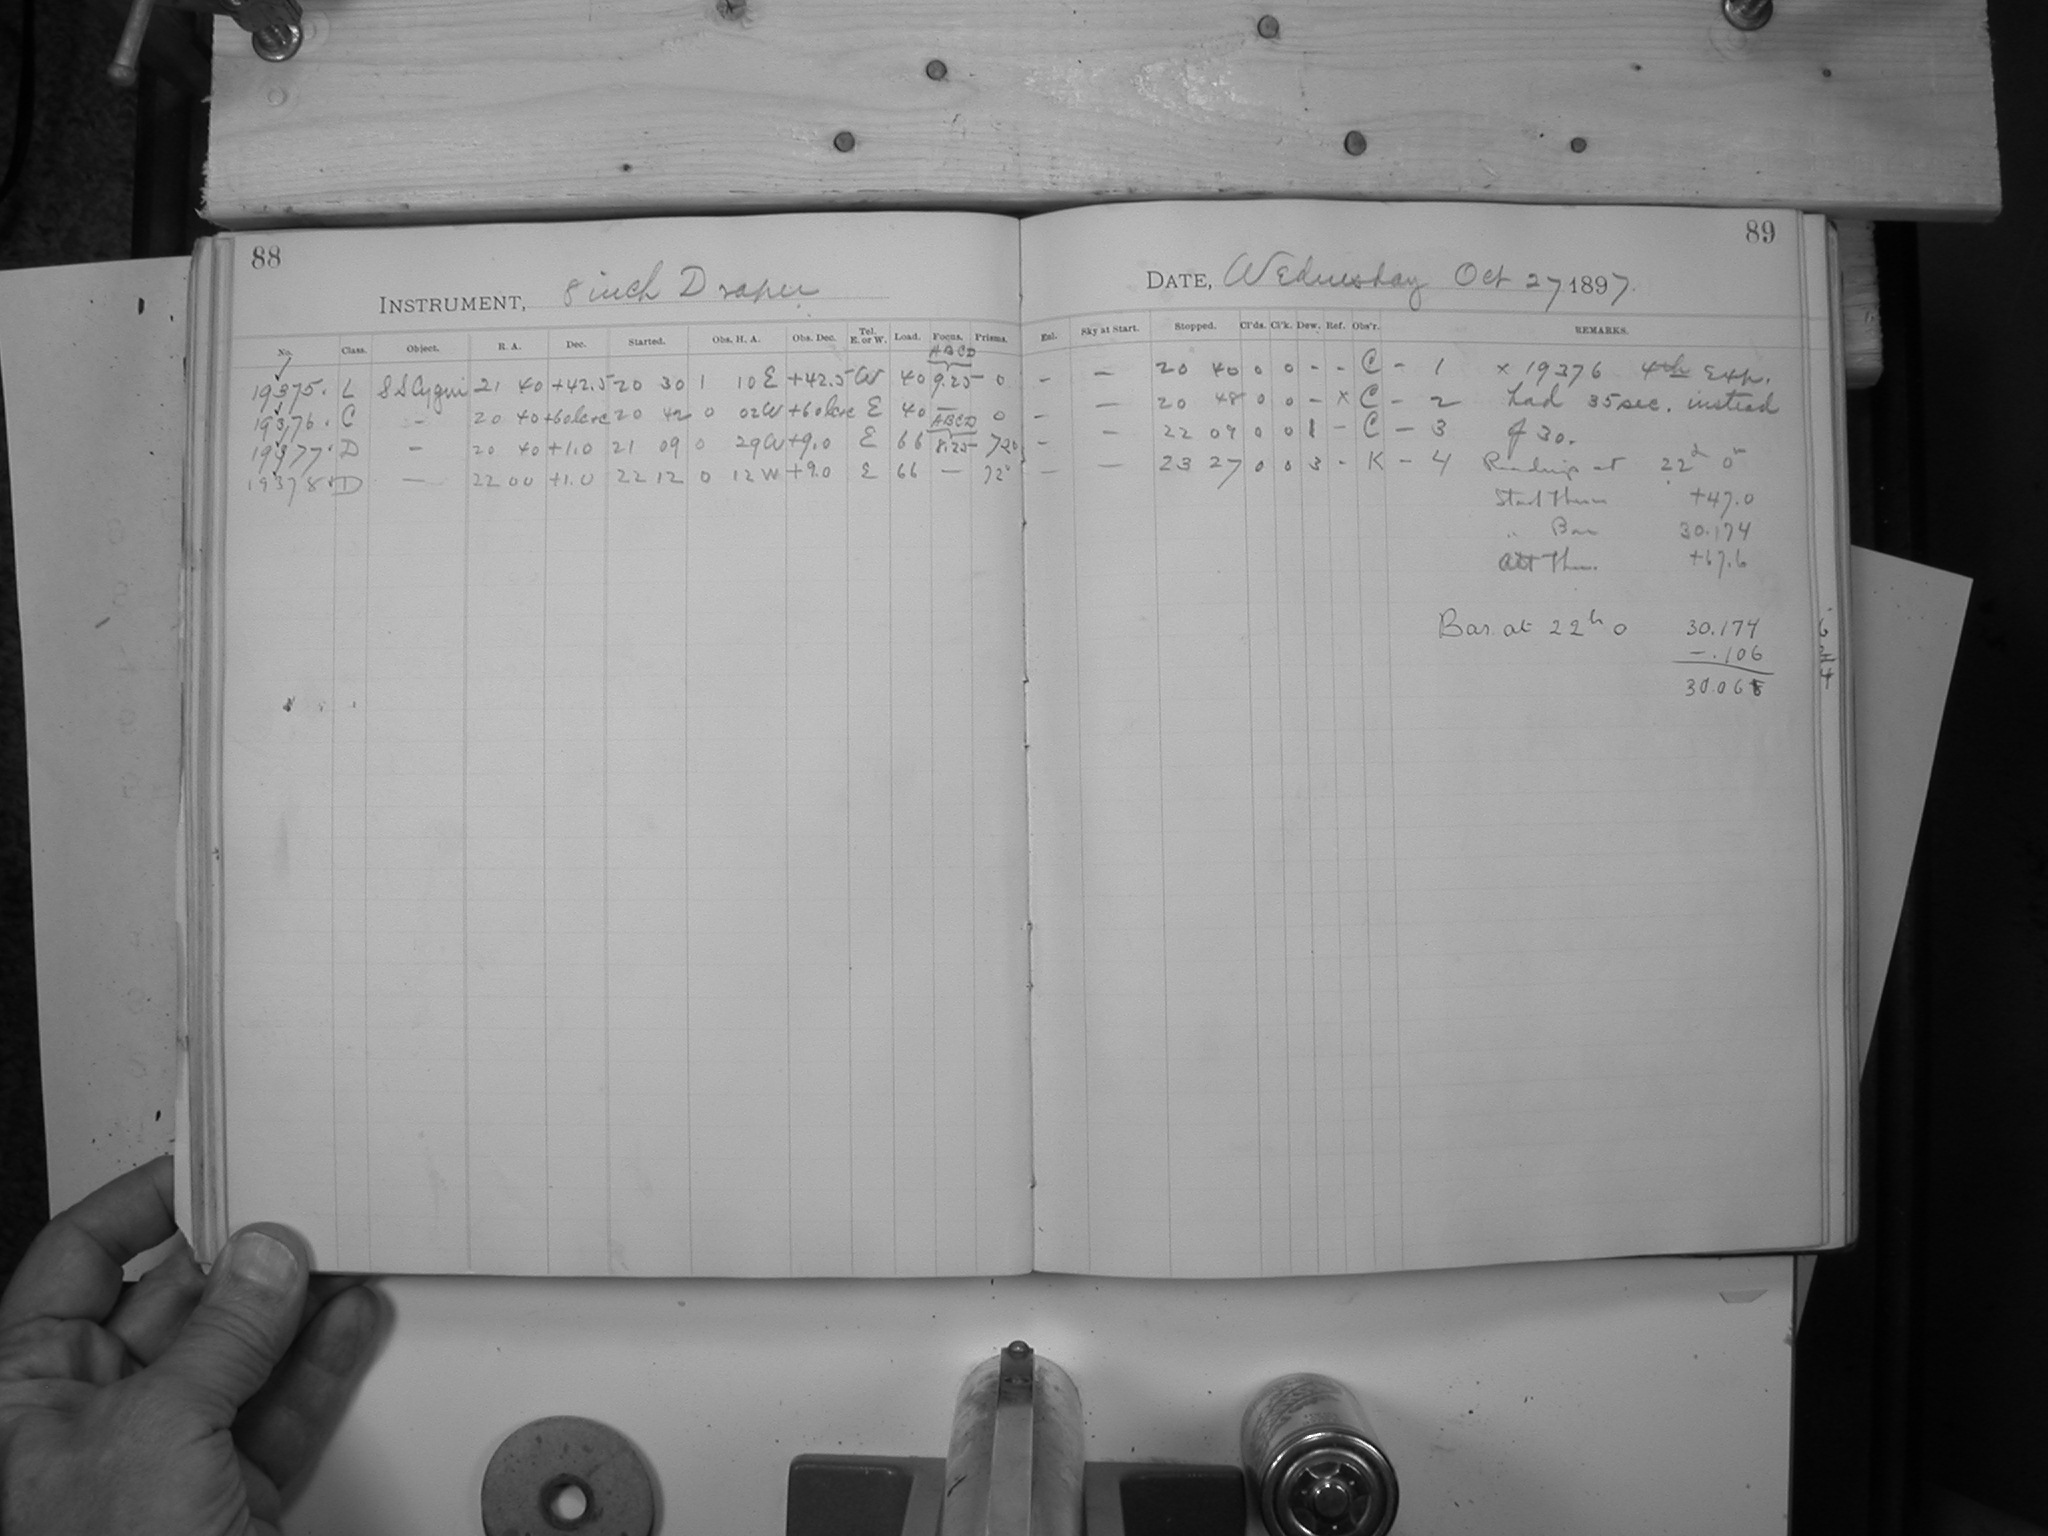 88
INSTRUMENT, 8 inch Draper
No. Class. Object. R. A. Dec. Started. Obs. H. A. Obs. Dec. Tel. E. or W. Load. Focus. Prisms.
ABCD
19375. L SS Cygni 21 40 +42.5 20 30 1 10 E +42.5 W 40 9.25 0
19376. C - 20 40 +60 20 42 0 02 W +60 E 40 — 0
ABCD
19377. D - 20 40 +1.0 21 09 0 29 W +9.0 E 66 8.25 720
19378. D — 22 00 +1.0 22 12 0 12 W +9.0 E 66 — 72
89
DATE, Wednesday Oct 27 1897.
Exl. Sky at Start. Stopped. Cl'ds. Cl'k. Dew. Ref. Obs'r. REMARKS.
- — 20 40 0 0 - - C - 1 × 19376 4th Exp.
- — 20 48 0 0 - × C - 2 had 35 sec. instead
- — 22 09 0 0 1 - C - 3 of 30.
— — 23 27 0 0 3 - K - 4 Readings at 22h 0m
Stad Therm +47.0
" Bar 30.174
Att Ther. +67.6
Bar. at 22h 0 30.174
-.106
30.068